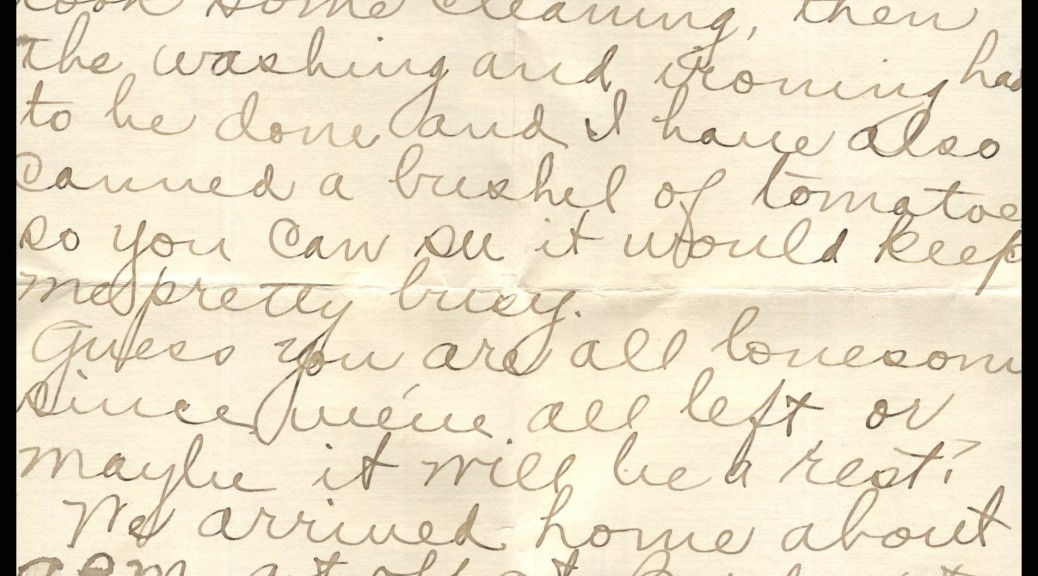 took some cleaning, then
the washing and ironing had
to be done and I have also
canned a bushel of tomatoe
so you can see it would keep
me pretty busy.
Guess you are all lonesom
since we've all left or
maybe it will be a rest?
We arrived home about